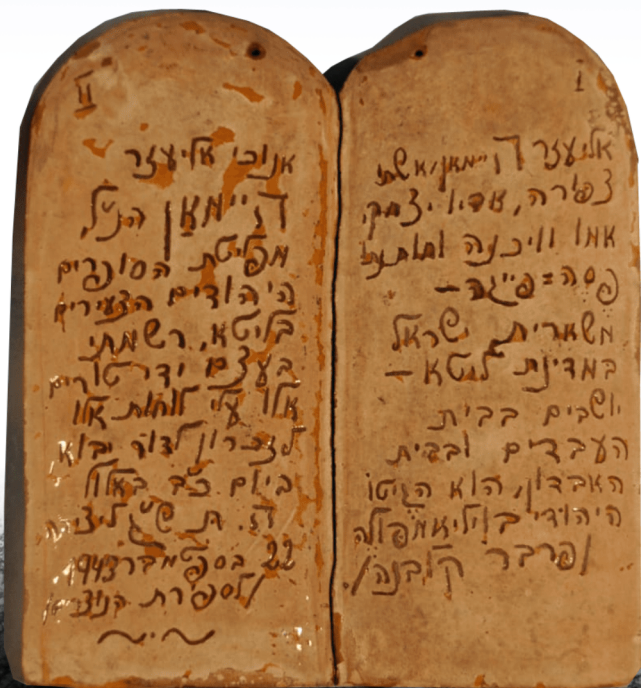 I
אליעזר היימאן, אשתו
צפורה, אביו יצחק,
אמו וויכנה וחותנתו
פסה=פייגה–
משארית ישראל
במדינת ליטא –
יושבים בבית
העבדים ובבית
האבדון, הוא הגיטו
היהודי בוויליאמפולה
/פרבר קובנה/.
II
אנוכי אליעזר
היימאן הנ"ל,
מפליטת הסופרים
היהודים הצעירים
בליטא, רשמתי
בעצם ידי טורים
אלו עלי לוחות אלו
לזכרון לדור יבוא
ביום כ"ב באלול
ה. ת. ש"ג ליצירה
22 בספטמבר 1943
/לספירת הנוצרים/